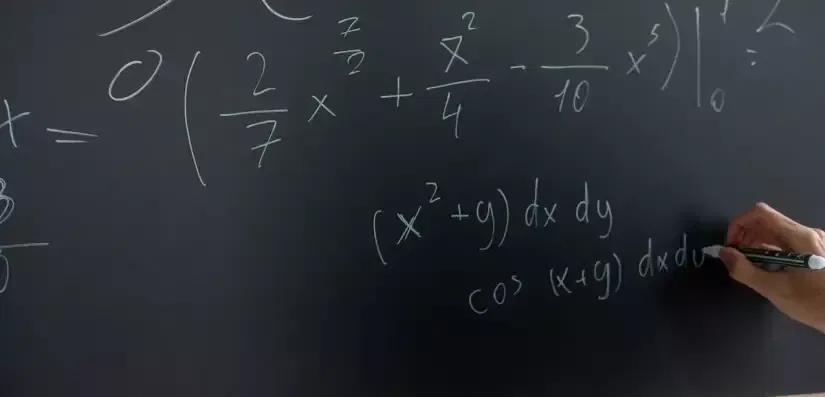 x = 0 ( 2/7 x^7/2 + x^2/4 - 3/10 x^5 ) |_0^1 =
(x^2+y) dx dy
cos (x+y) dx dy